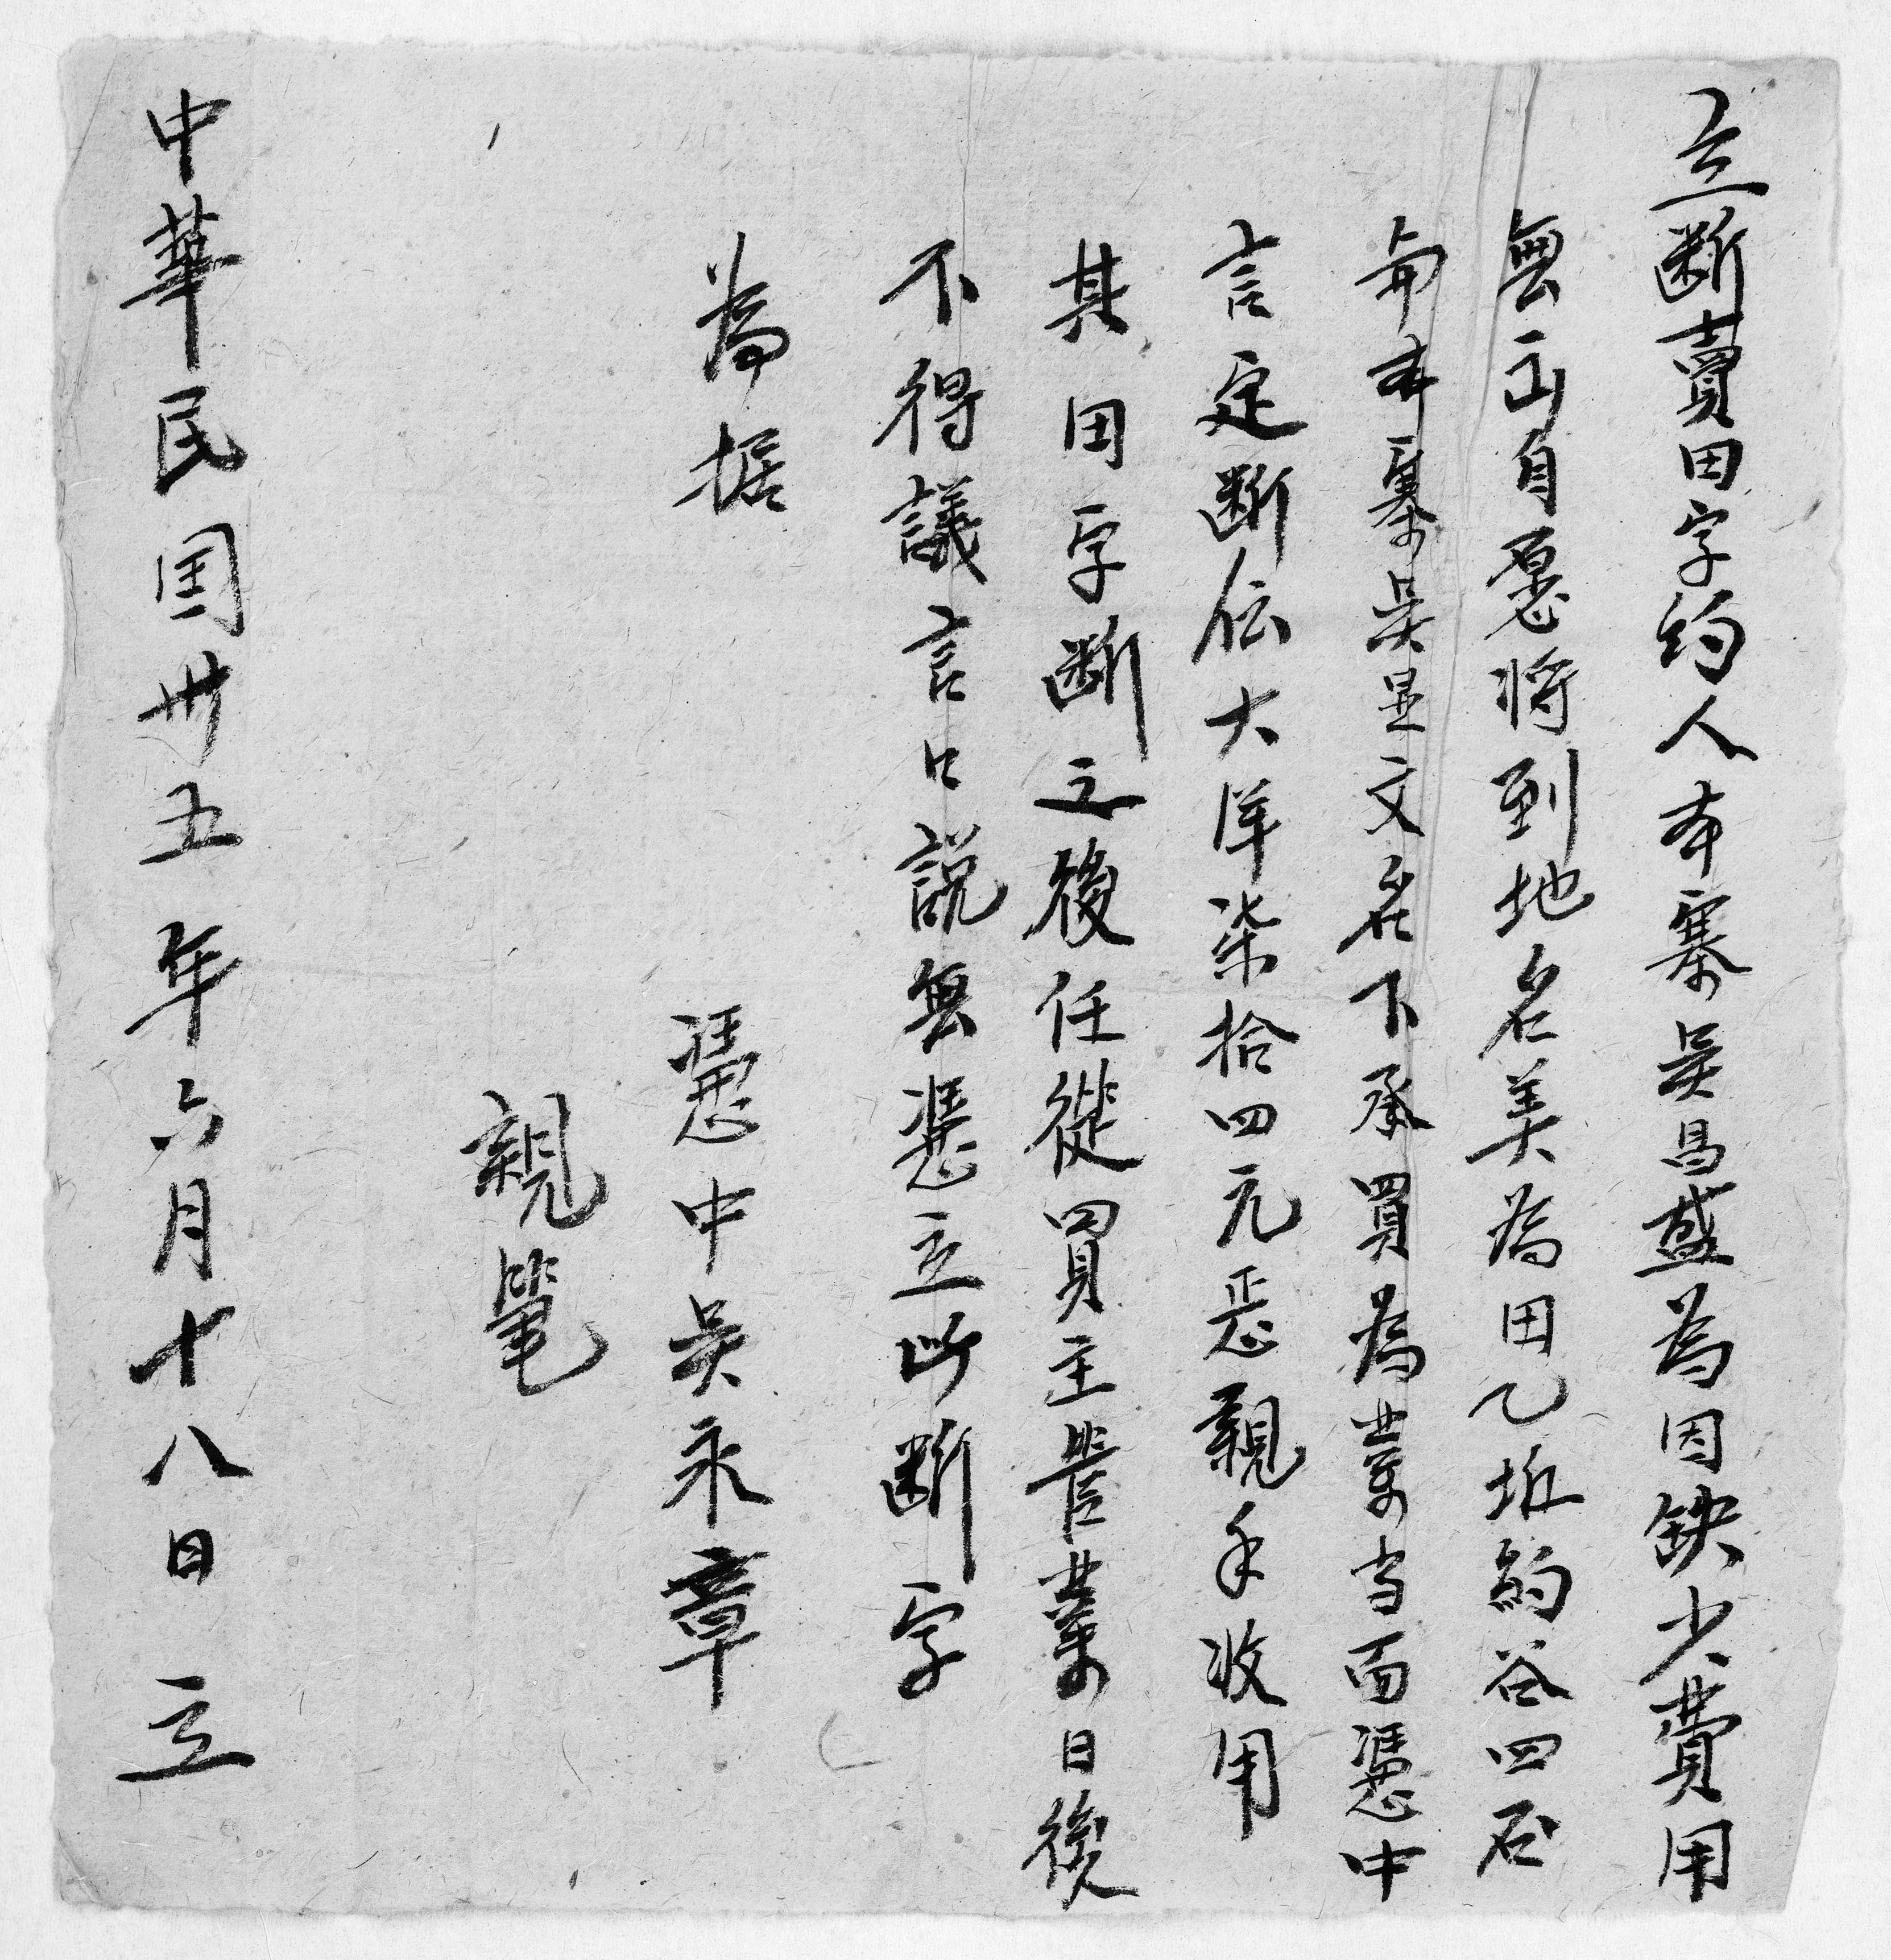 立斷賣田字約人本寨吳昌盛為因缺少費用
無出自愿將到地名美為田乙坵約谷四石
与本寨吳显文名下承買為業当面憑中
言定斷价大洋柒拾四元恶親手收用
其田字斷之後任從買主管業日後
不得議言口説無憑立此斷字
為据
憑中吴永章
親筆
中華民国卅五年六月十八日立